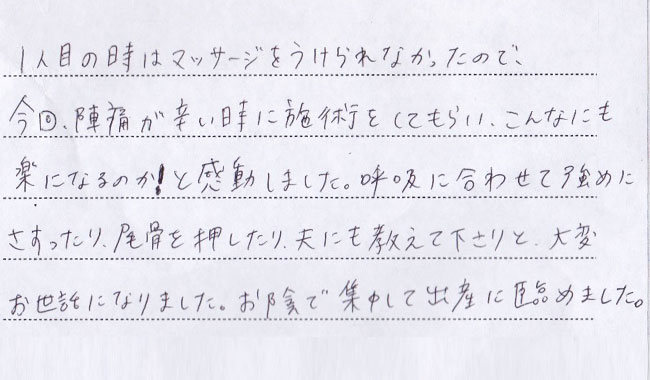 1人目の時はマッサージをうけられなかったので、
今回、陣痛が辛い時に施術をしてもらい、こんなにも
楽になるのか!と感動しました。呼吸に合わせて強めに
さすったり、尾骨を押したり、夫にも教えて下さりと、大変
お世話になりました。お陰で集中して出産に臨めました。